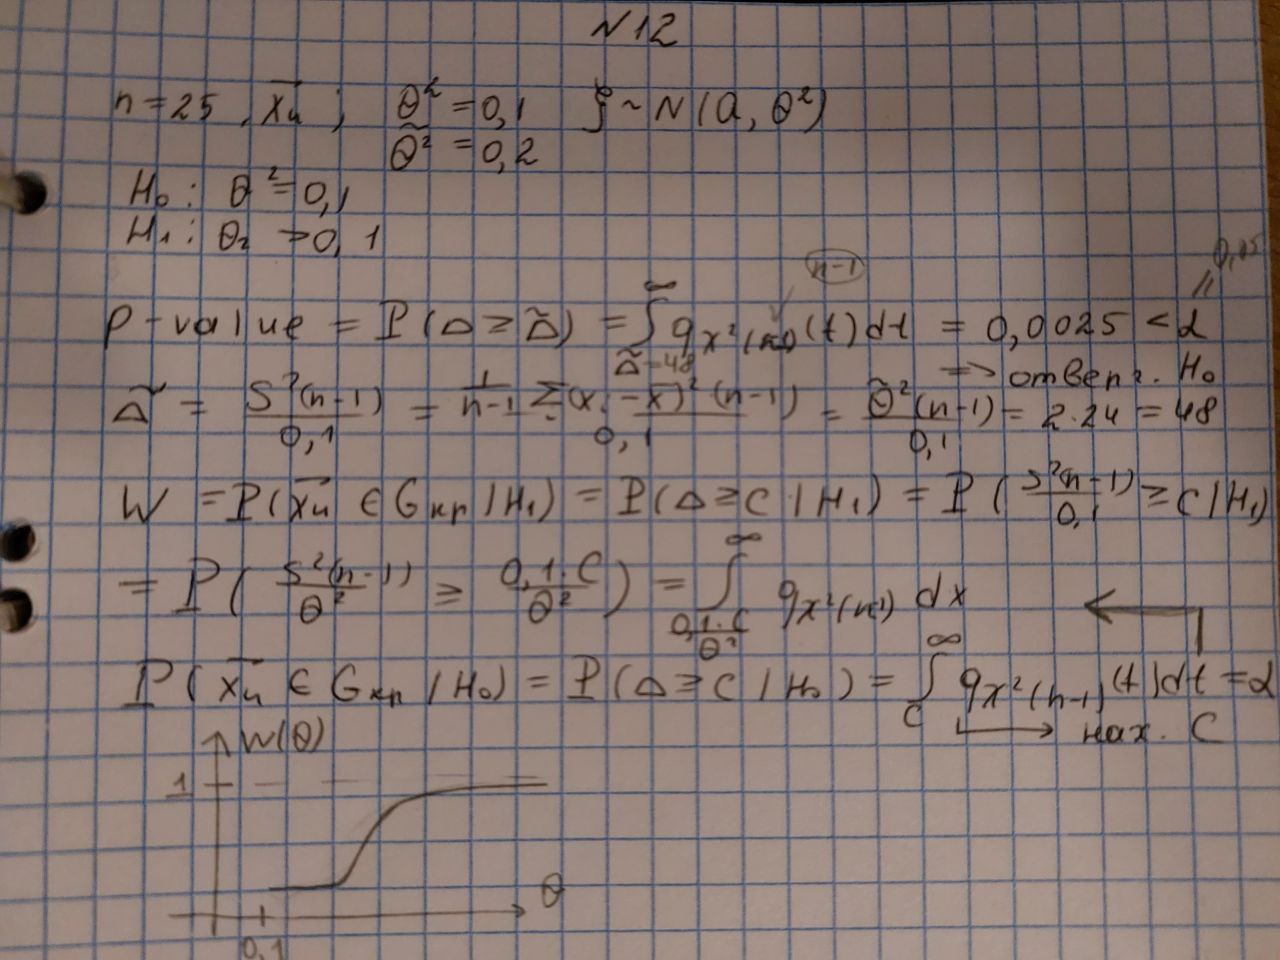 N12
n = 25 , x̄ₙ ; θ² = 0,1 ξ ~ N(a, θ²)
θ̃² = 0,2
H₀ : θ² = 0,1
H₁ : θ₂ > 0,1
n-1
0,05
p-value = P(Δ ≥ Δ̃) = ∫_{Δ̃=48}^{∞} q_{χ²(n-1)}(t)dt = 0,0025 < α
=> отверг. H₀
Δ̃ = S²(n-1)/0,1 = 1/(n-1) Σ(xᵢ-x̄)²(n-1)/0,1 = θ̃²(n-1)/0,1 = 2·24 = 48
W = P(x̄ₙ ∈ Gкр / H₁) = P(Δ ≥ C / H₁) = P(S²(n-1)/0,1 ≥ C / H₁)
= P(S²(n-1)/θ² ≥ 0,1·C/θ²) = ∫_{0,1·C/θ²}^{∞} q_{χ²(n-1)} dx
P(x̄ₙ ∈ Gкр / H₀) = P(Δ ≥ C / H₀) = ∫_{C}^{∞} q_{χ²(n-1)}(t)dt = α
нах. C
W(θ)
1
θ
0,1